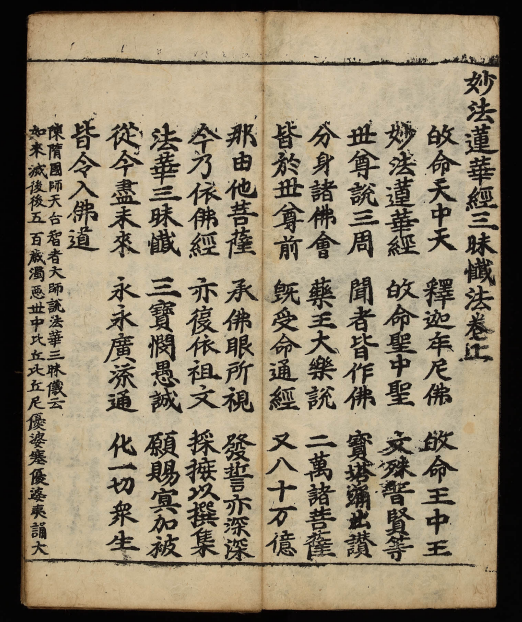 妙法蓮華經三昧懺法卷上
敀命天中天 釋迦牟尼佛 敀命王中王
妙法蓮華經 敀命聖中聖 文殊普賢等
世尊說三周 聞者皆作佛 寶塔踊出讚
分身諸佛會 藥王大樂說 二萬諸菩薩
皆於世尊前 旣受命通經 又八十万億
那由他菩薩 承佛眼所視 發誓亦深深
今乃依佛經 亦復依祖文 採摭以撰集
法華三昧懺 三寶憫愚誠 願賜冥加被
從今盡未來 永永廣流通 化一切衆生
皆令入佛道
陳隋國師天台智者大師說法華三昧儀云
如來滅後後五百歲濁惡世中比丘比丘尼優婆塞優婆夷誦大